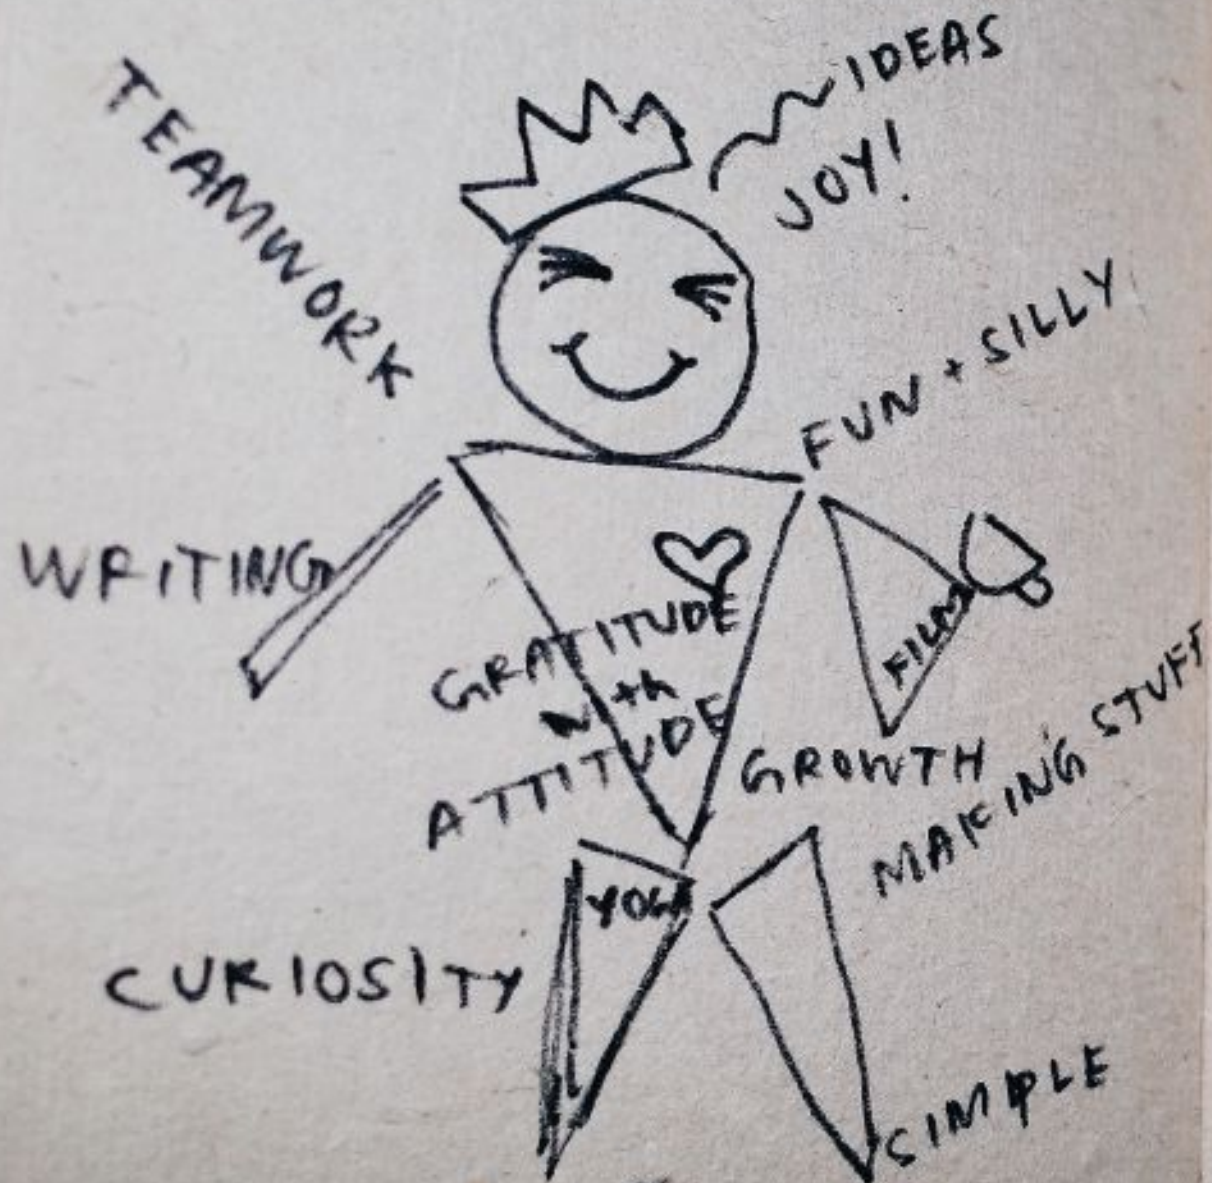 TEAMWORK
IDEAS
JOY!
FUN + SILLY
WRITING
FILM
GRATITUDE
with
ATTITUDE
GROWTH
MAKING STUFF
YOGA
CURIOSITY
SIMPLE